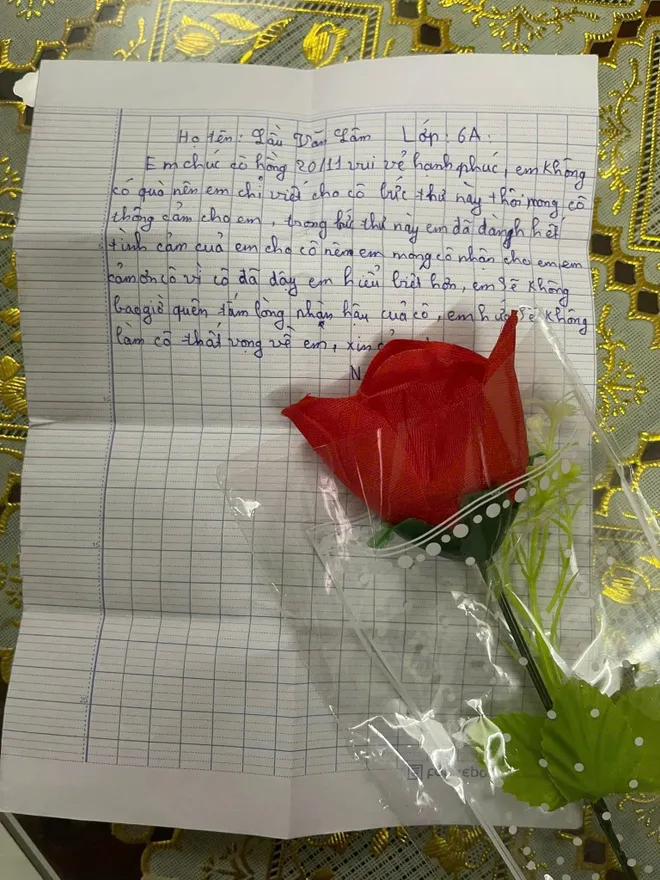 Họ tên: Lầu Văn Lâm Lớp: 6A.
Em chúc cô hằng 20/11 vui vẻ hạnh phúc, em không
có quà nên em chỉ viết cho cô bức thư này thôi mong cô
thông cảm cho em, trong bứ thư này em đã dành hết
tình cảm cuả em cho cô nên em mong cô nhận cho em, em
cảm ơn cô vì cô đã dậy em hiểu biết hơn, em sẽ không
bao giờ quên tấm lòng nhận hậu cuả cô, em hứa sẽ không
làm cô thất vọng về em, xin